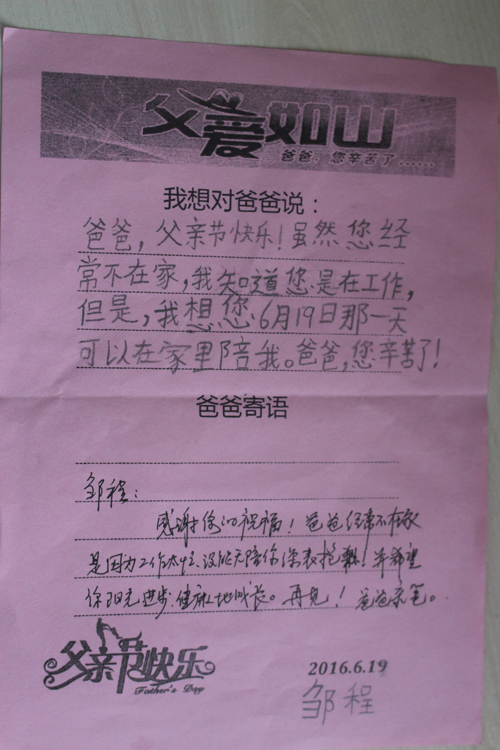 父爱如山
爸爸，您辛苦了......
我想对爸爸说：
爸爸，父亲节快乐！虽然您经
常不在家，我知道您是在工作，
但是，我想您6月19日那一天
可以在家里陪我。爸爸，您辛苦了！
爸爸寄语
邹程：
感谢你的祝福！爸爸经常不在家
是因为工作太忙，没能天陪你深表抱歉！并希望
你阳光进步.健康地成长。再见！爸爸亲笔。
父亲节快乐
Father's Day
2016.6.19
邹程